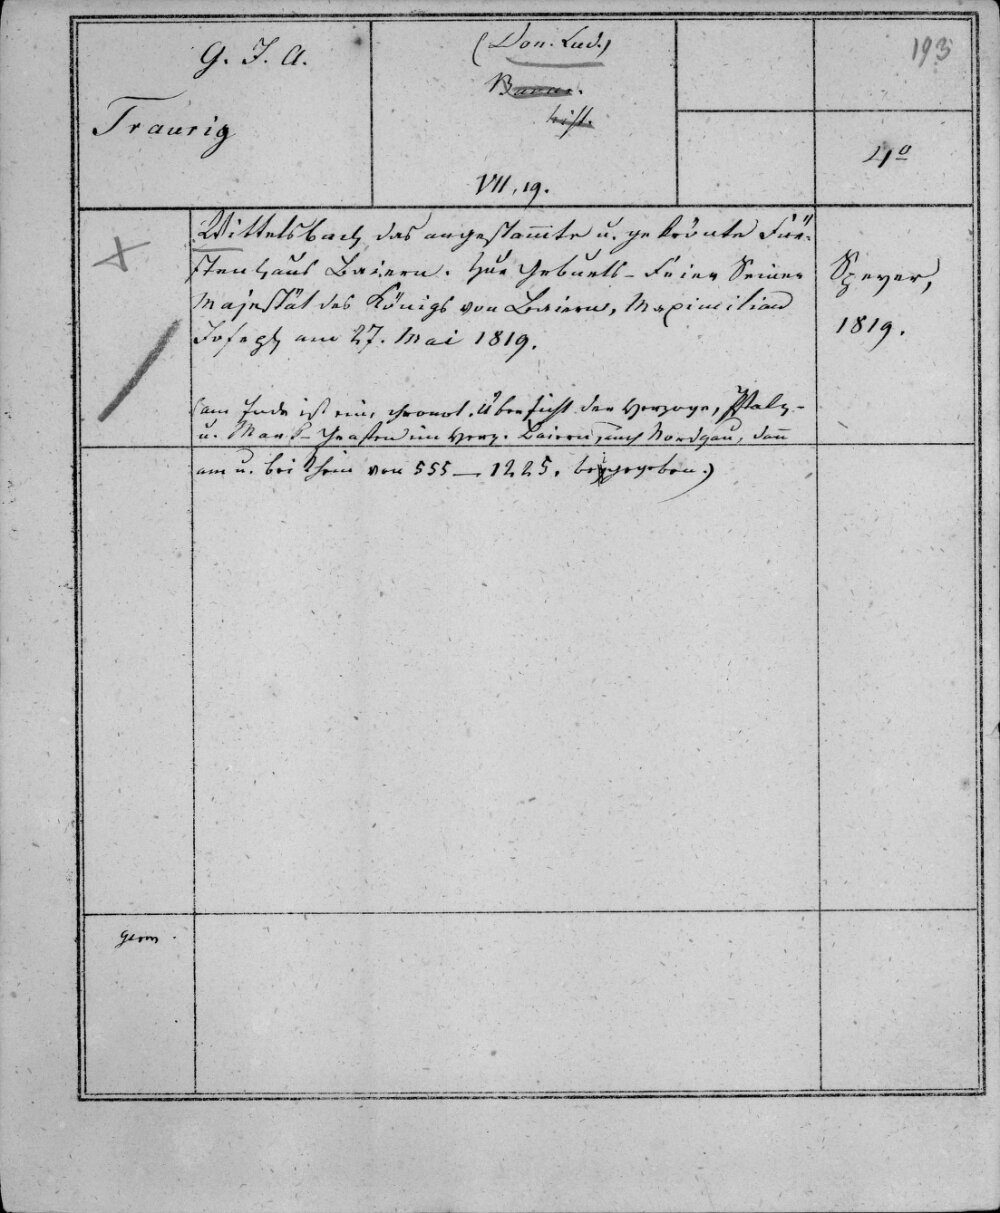 G. J. A.
Traurig
(Don. Lud.)
Bavar.
hist.
VII, 19.
193
4º
Wittelsbach, das angestammte u. gekrönte Für-
stenhaus Baiern. Zur Geburts-Feier Seiner
Majestät des Königs von Baiern, Maximilian
Joseph am 27. Mai 1819.
Speyer,
1819.
(am Ende ist eine chronol. Übersicht der Herzoge, Pfalz-
u. Mark-Grafen im Herz. Baiern, auch Nordgau, dann
am u. bei Rhein von 555 — 1225. beygegeben.)
germ.